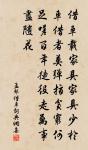 借車載家具家具少於
車借者莫彈指貧窮何
足嗟百年徒役走萬事
盡隨花
孟郊借車